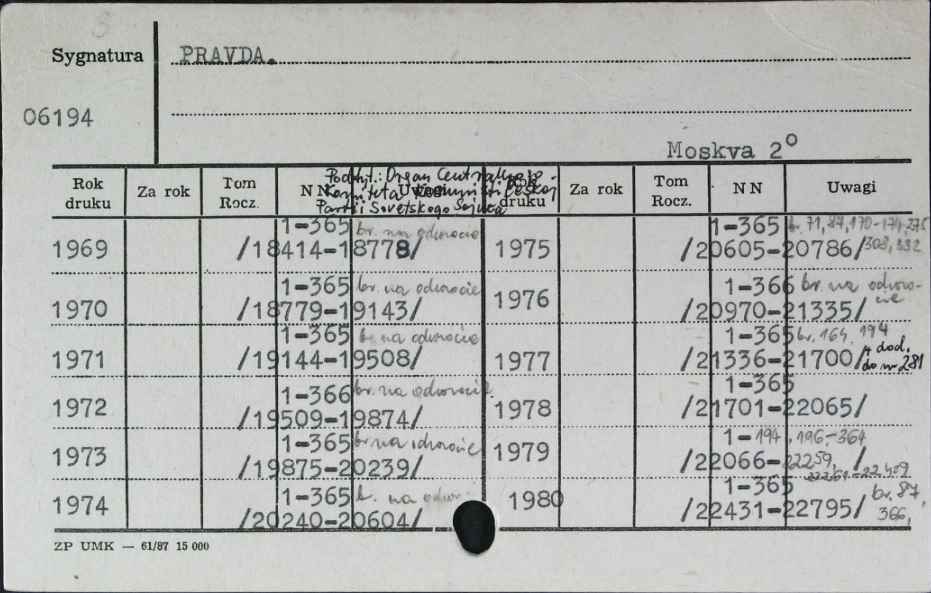 Sygnatura PRAVDA.
06194
Moskva 2º
Podtyt.: Organ Central'nogo
Komiteta Kommunističeskoj
Partii Sovetskogo Sojuza
Rok druku Za rok Tom Rocz. NN Uwagi Rok druku Za rok Tom Rocz. NN Uwagi
1969 1-365 br. na odwrocie
/18414-18778/
1975 1-365 br. 71, 87, 170-174, 275
/20605-20786/ 308, 332
1970 1-365 br. na odwrocie
/18779-19143/
1976 1-366 br. na odwro-
cie
/20970-21335/
1971 1-365 br. na odwrocie
/19144-19508/
1977 1-365 br. 164, 194
/21336-21700/ + dod.
do nr 281
1972 1-366 br. na odwrocie
/19509-19874/
1978 1-365
/21701-22065/
1973 1-365 br na odwrocie
/19875-20239/
1979 1-194, 196-364
/22066-22259 /
22261-22409
1974 1-365 b. na odwr.
/20240-20604/
1980 1-365 br. 87,
/22431-22795/ 366,
ZP UMK — 61/87 15 000